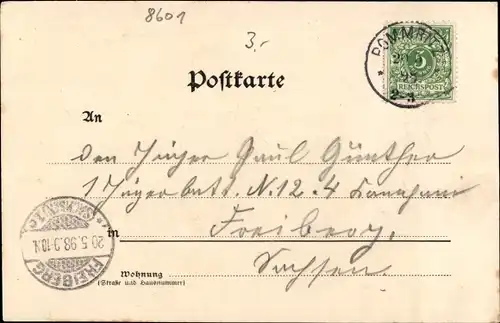 8601
3.-
POMMRITZ
98
2-3
5
REICHSPOST
Postkarte
An
den Jäger Paul Günther
1 Jägerbatt. N. 12. 4 Kompanie
in Freiberg
Sachsen
Wohnung
(Straße und Hausnummer)
FREIBERG
20.5.98.9-10.N.
(SACHSEN)